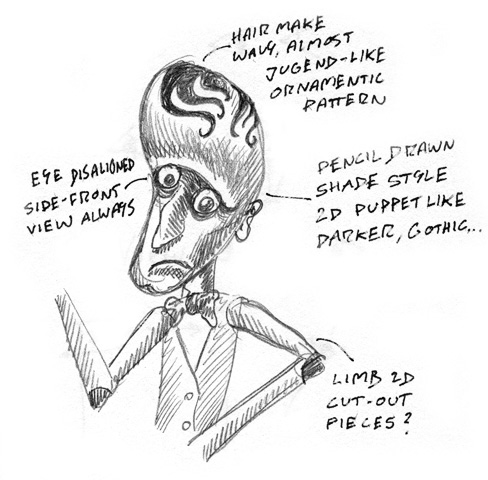 HAIR MAKE
WAVY, ALMOST
JUGEND-LIKE
ORNAMENTIC
PATTERN
EYE DISALIGNED
SIDE-FRONT
VIEW ALWAYS
PENCIL DRAWN
SHADE STYLE
2D PUPPET LIKE
DARKER, GOTHIC...
LIMB 2D
CUT-OUT
PIECES?